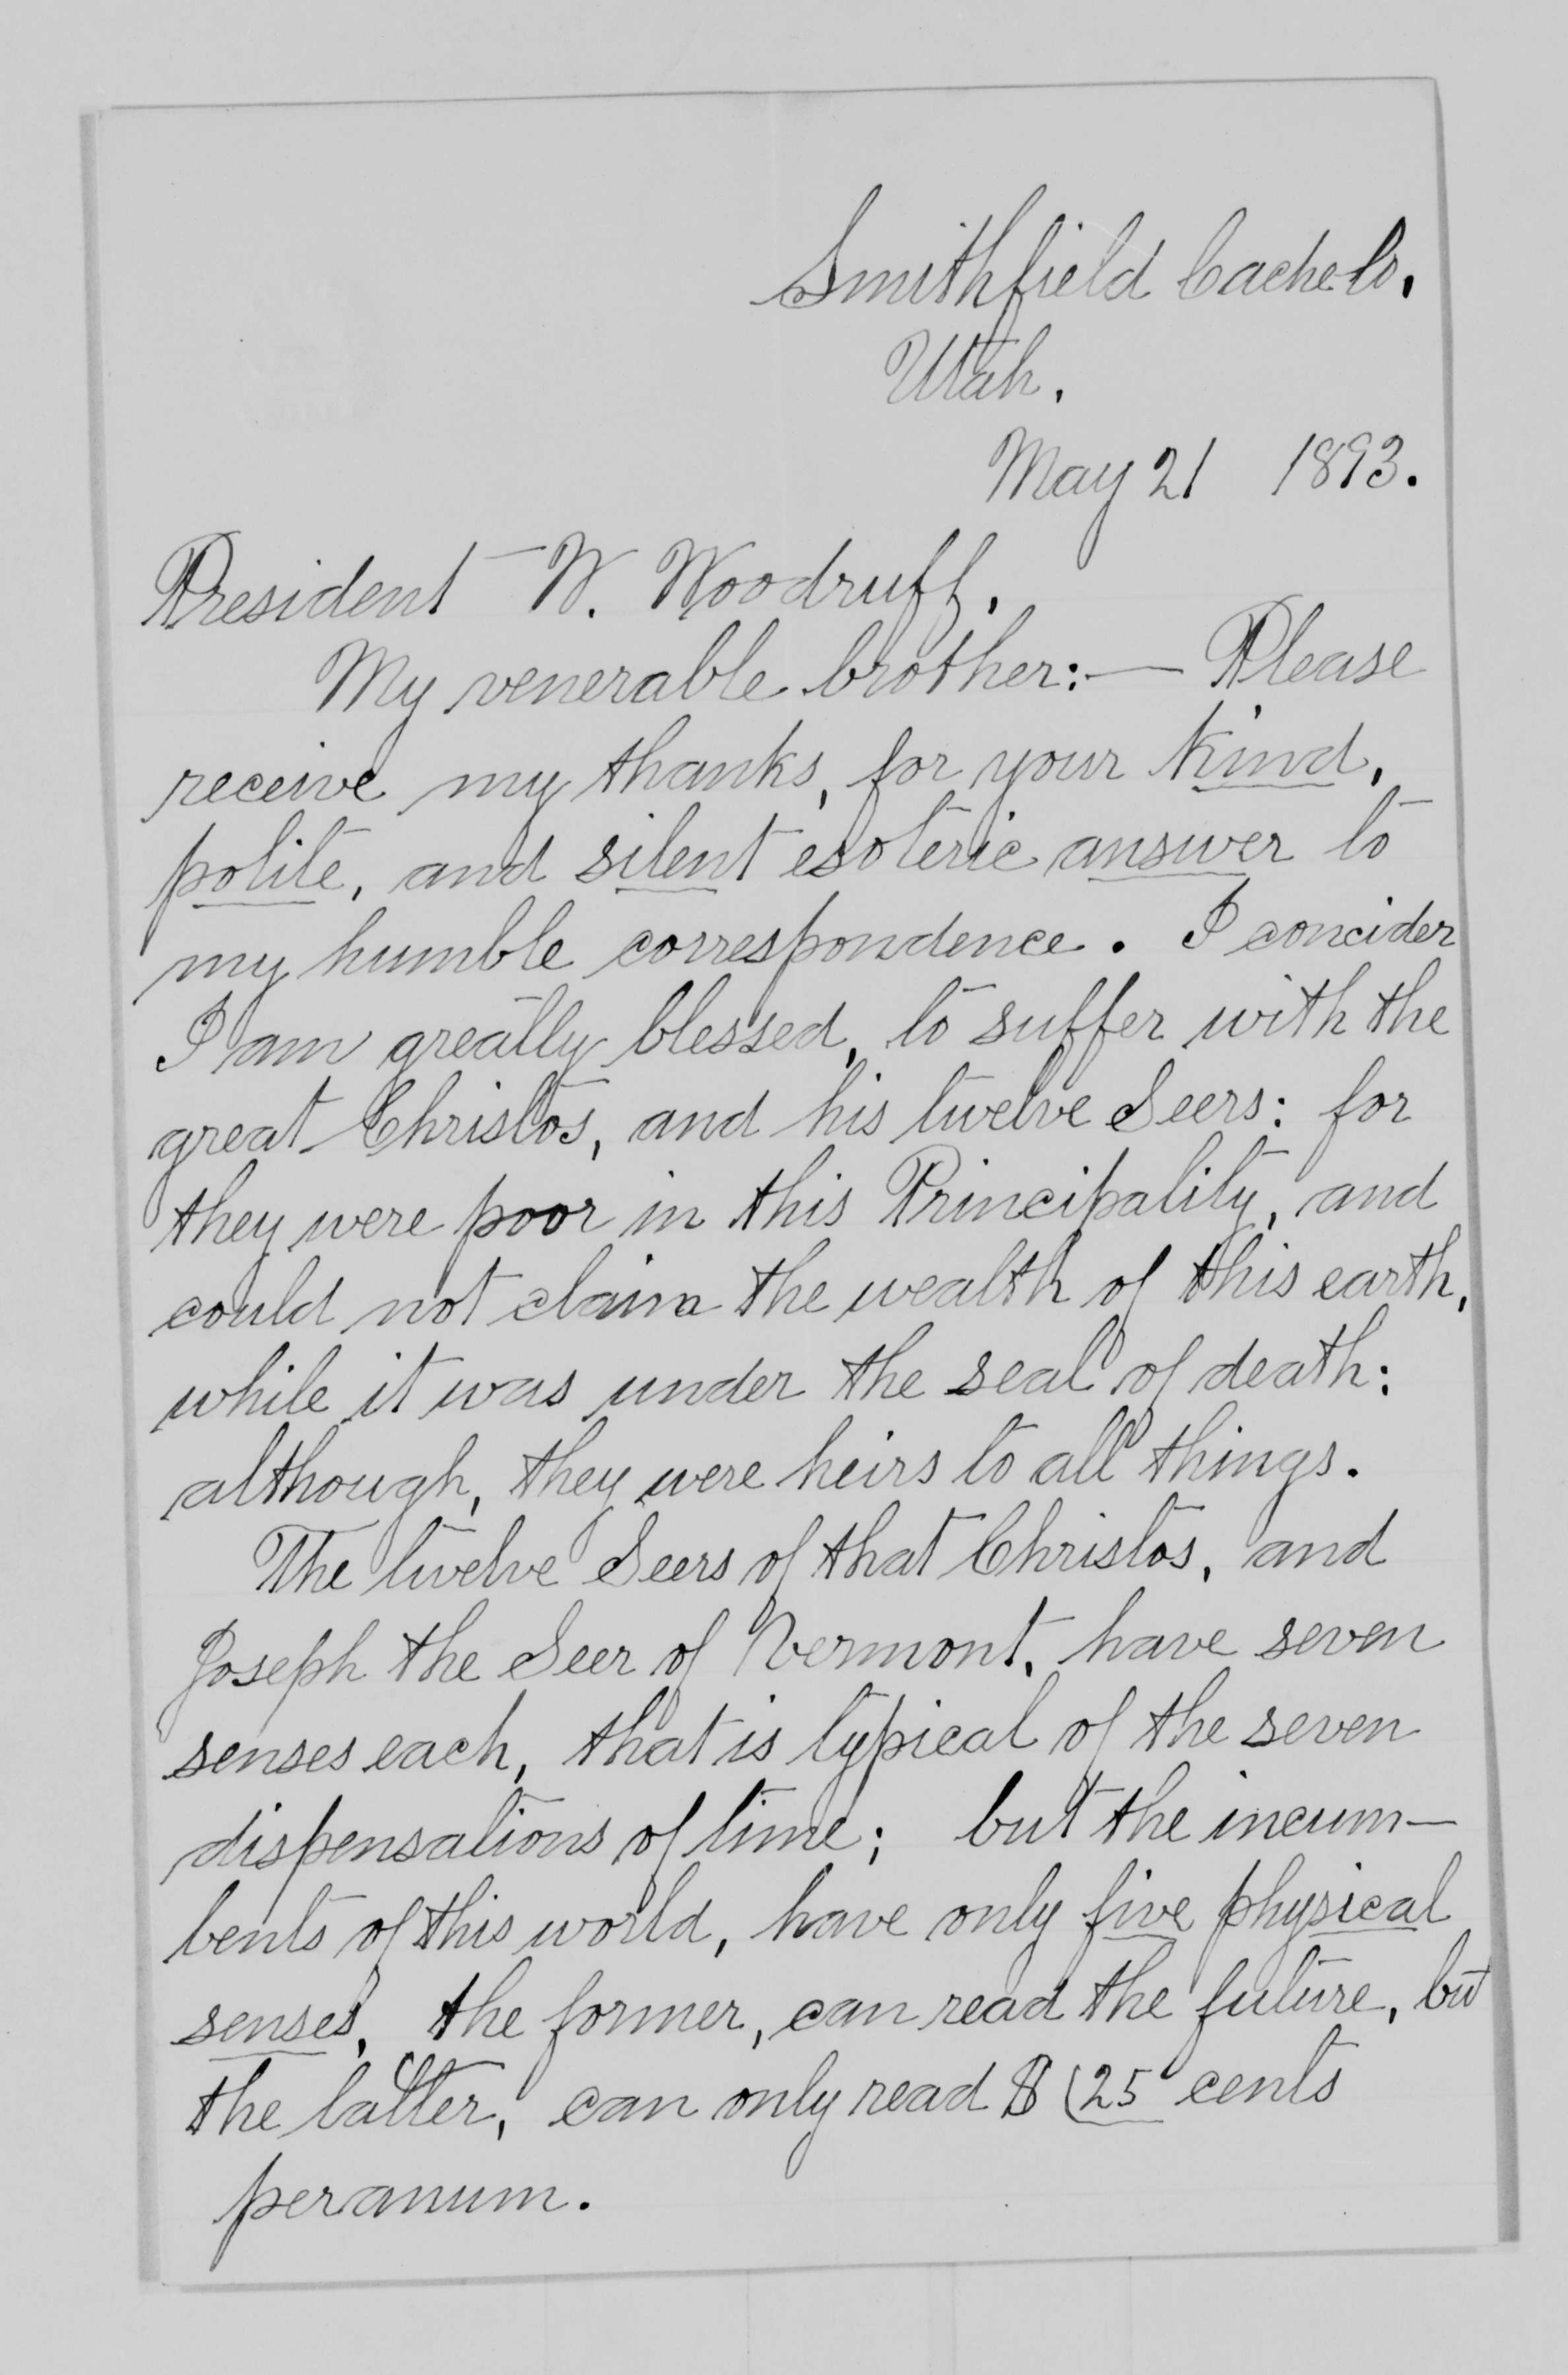 Smithfield Cache Co,
Utah.
May 21 1893.
President W. Woodruff.
My venerable brother:— Please
receive my thanks, for your kind,
polite, and silent esoteric answer to
my humble correspondence. I concider
I am greatly blessed, to suffer with the
great Christos, and his twelve Seers: for
they were poor in this Principality, and
could not claim the wealth of this earth,
while it was under the seal of death:
although, they were heirs to all things.
The twelve Seers of that Christos, and
Joseph the Seer of Vermont, have seven
senses each, that is typical of the seven
dispensations of time; but the incum—
bents of this world, have only five physical
senses, the former, can read the future, but
the latter, can only read $ (25 cents
per anum.